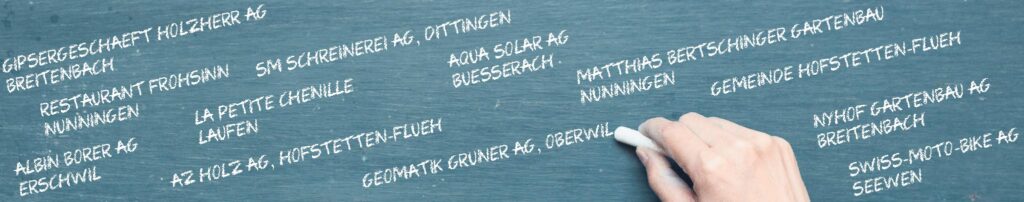 GIPSERGESCHAEFT HOLZHERR AG
BREITENBACH
RESTAURANT FROHSINN
NUNNINGEN
ALBIN BORER AG
ERSCHWIL
SM SCHREINEREI AG, DITTINGEN
LA PETITE CHENILLE
LAUFEN
AZ HOLZ AG, HOFSTETTEN-FLUEH
AQUA SOLAR AG
BUESSERACH
GEOMATIK GRUNER AG, OBERWIL
MATTHIAS BERTSCHINGER GARTENBAU
NUNNINGEN
GEMEINDE HOFSTETTEN-FLUEH
NYHOF GARTENBAU AG
BREITENBACH
SWISS-MOTO-BIKE AG
SEEWEN